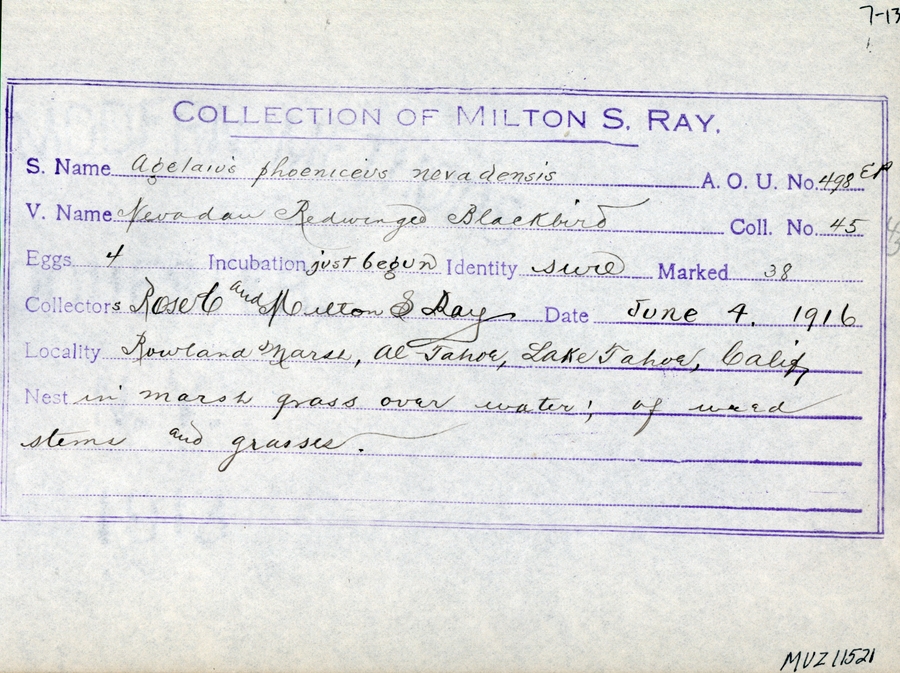 7-13
COLLECTION OF MILTON S. RAY.
S. Name Agelaius phoeniceus nevadensis A. O. U. No. 498 EP
V. Name Nevadan Redwinged Blackbird Coll. No. 45
Eggs 4 Incubation just begun Identity sure Marked 38
Collectors Rose C and Milton S Ray Date June 4. 1916
Locality Rowland Marsh, Al Tahoe, Lake Tahoe, Calif
Nest in marsh grass over water; of weed
stems and grasses.
MVZ 11521